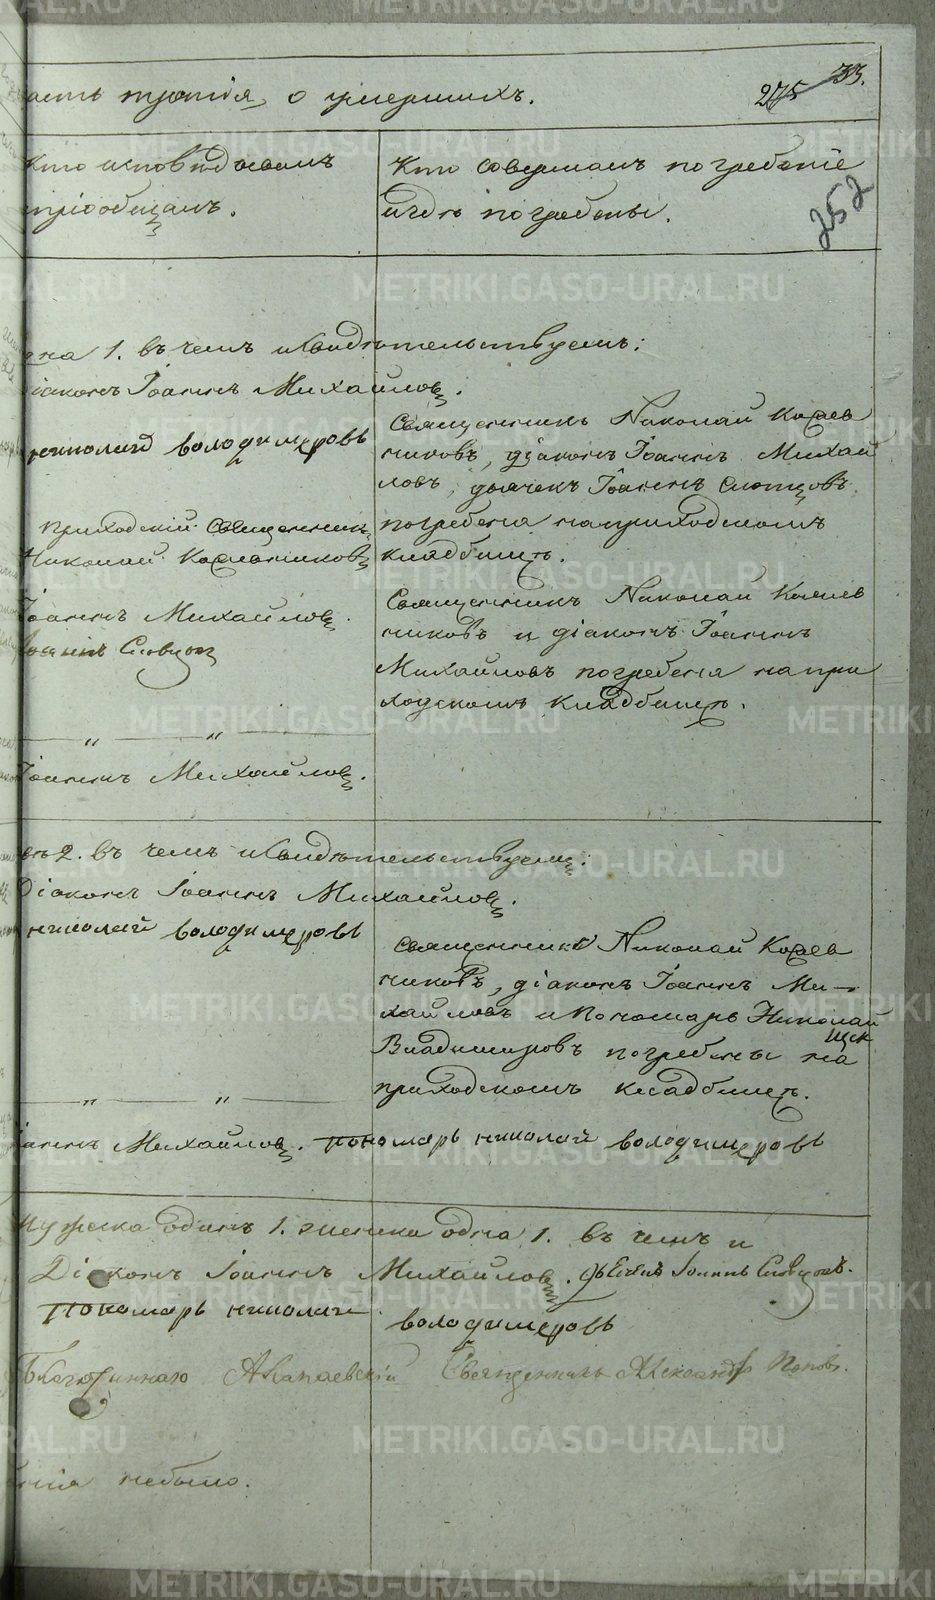 асть третія, о умершихъ.
275 33.
252
Кто исповѣдовалъ
пріобщалъ.
Кто совершалъ погребеніе
и гдѣ погребены.
на 1. въ чемъ и свидѣтельствуемъ:
діаконъ Іоаннъ Михайловъ.
николай володимеровъ
Священникъ Николай
никовъ, діаконъ Іоаннъ Михай
ловъ, дьячекъ Іоаннъ Словцовъ
погребена на приходскомъ
кладбищѣ.
приходскій священникъ
Николай
Іоаннъ Михайловъ.
Іоаннъ Словцовъ
Священникъ Николай
никовъ и діаконъ Іоаннъ
Михайловъ погребена на при
ходскомъ кладбищѣ.
— „ — „ —
Іоаннъ Михайловъ.
2. въ чемъ и свидѣтельствуемъ:
Діаконъ Іоаннъ Михайловъ.
николай володимеровъ
священникъ Николай
никовъ, діаконъ Іоаннъ Ми-
хайловъ и пономарь Николай
Владимировъ погребены на
приходскомъ кладбищѣ.
— „ — „ —
Іоаннъ Михайловъ. пономарь николай володимеровъ
мужеска одинъ 1. женска одна 1. въ чемъ и
Діаконъ Іоаннъ Михайловъ. дьячекъ Іоаннъ Словцовъ.
пономарь николай
володимеровъ
Алапаевскій Священникъ Александръ Поповъ.
небыло.
METRIKI.GASO-URAL.RU